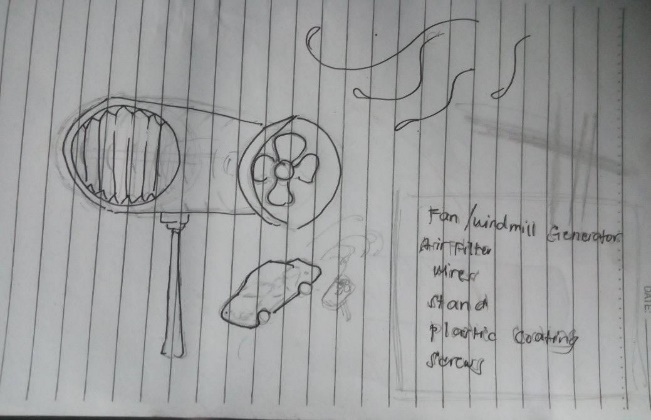 Fan/windmill Generator
Air Filter
wires
stand
plastic coating
screws
DATE